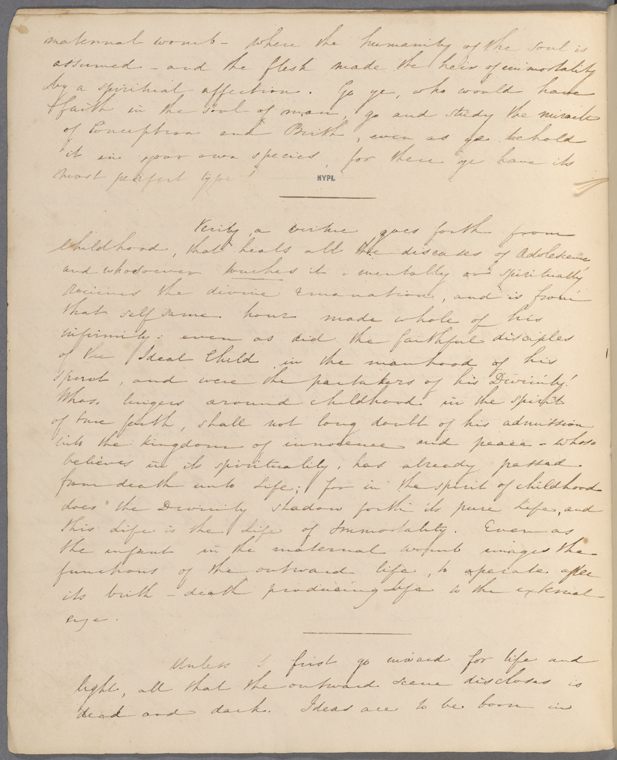 maternal womb - where the humanity of the soul is
assumed - and the flesh made the heir of immortality
by a spiritual affection. Go ye, who would have
faith in the soul of man, go and study the miracle
of Conception and Birth, even as ye behold
it in your own species, for there ye have its
most perfect type!
NYPL
Verily, a virtue goes forth from
Childhood, that heals all the diseases of Adolescence
and whosoever touches it - mentally and spiritually
receives the divine emanation, and is from
that self same hour made whole of his
infirmity; even as did the faithful disciples
of the Ideal Child in the manhood of his
spirit, and were the partakers of his Divinity!
Whoso lingers around childhood in the spirit
of true faith, shall not long doubt of his admission
into the kingdom of innocence and peace - whoso
believes in its spirituality, has already passed
from death unto Life; for in the spirit of childhood
does the Divinity shadow forth its pure Life, and
this Life is the Life of Immortality. Even as
the infant in the maternal womb images the
functions of the outward life, to operate after
its birth - death producing life to the external
eye.
Unless I first go inward for life and
light, all that the outward scene discloses is
dead and dark. Ideas are to be born in